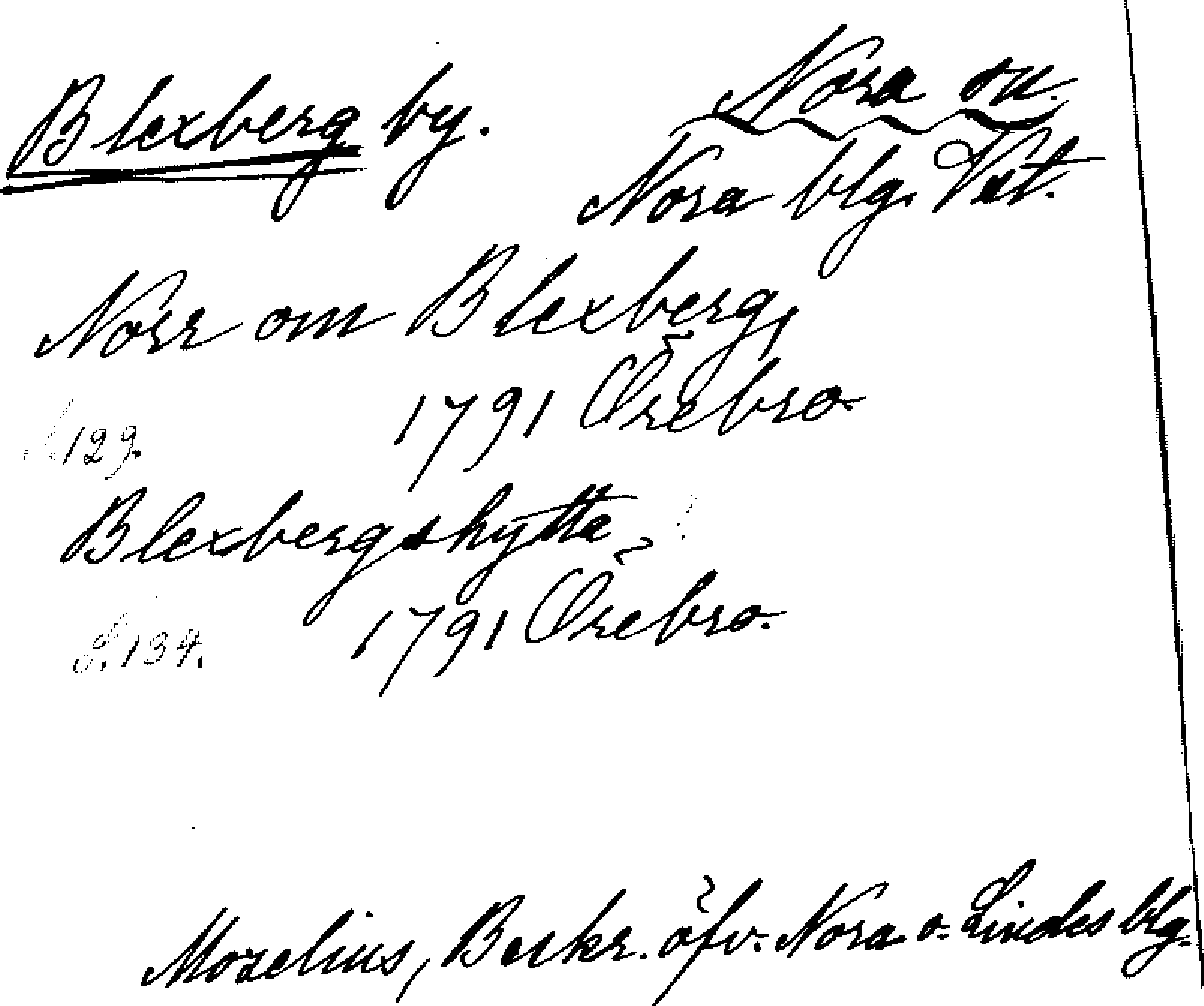 Blexberg by.
Nora sn.
Nora blg. Vstm.
Norr om Blexberg,
1791 Örebro.
S. 129.
Blexbergshytte
1791 Örebro.
S. 134.
Mozelius, Beskr. öfv. Nora o. Lindes blg.